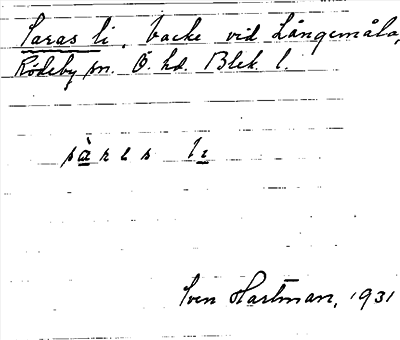 Saras li, backe vid Långemåla,
Rödeby sn. Ö. hd. Blek. l.
sàras li
Sven Hartman, 1931